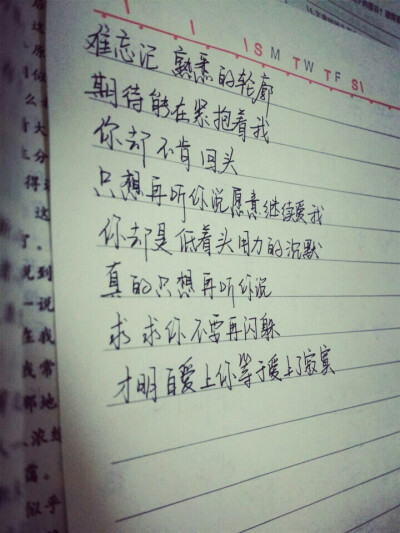 S M T W T F S
难忘记 熟悉的轮廓
期待能在紧抱着我
你却不肯回头
只想再听你说愿意继续爱我
你却是低着头用力的沉默
真的只想再听你说
求求你不要再闪躲
才明白爱上你等于爱上了寂寞